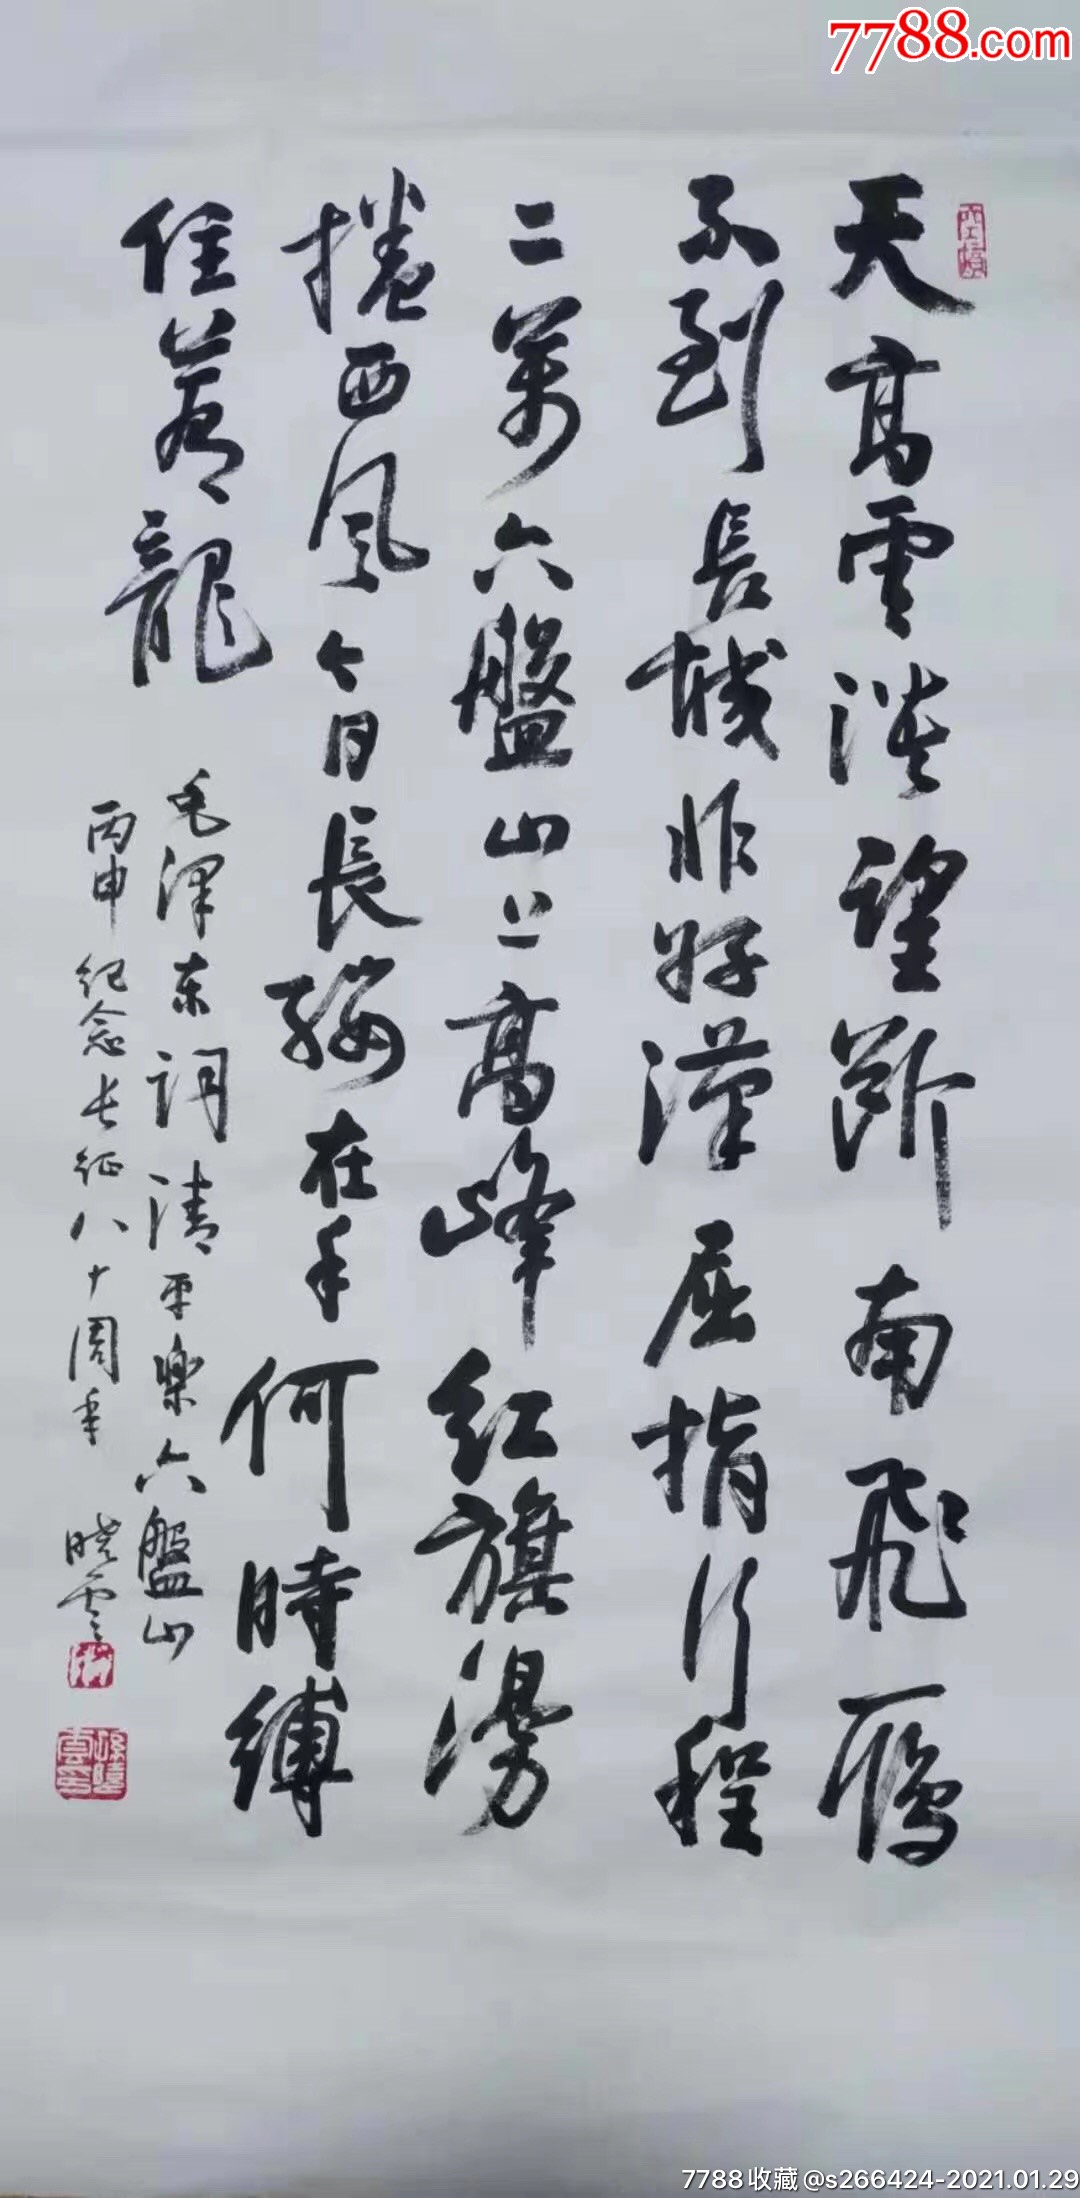 7788.com
天高雲淡望斷南飛雁
不到長城非好漢屈指行程
二萬六盤山上高峰紅旗漫
捲西風今日長纓在手何時縛
住蒼龍
毛澤東詞清平樂六盤山
丙申紀念长征八十周年 曉雲
孫曉雲印
7788收藏@s266424-2021.01.29